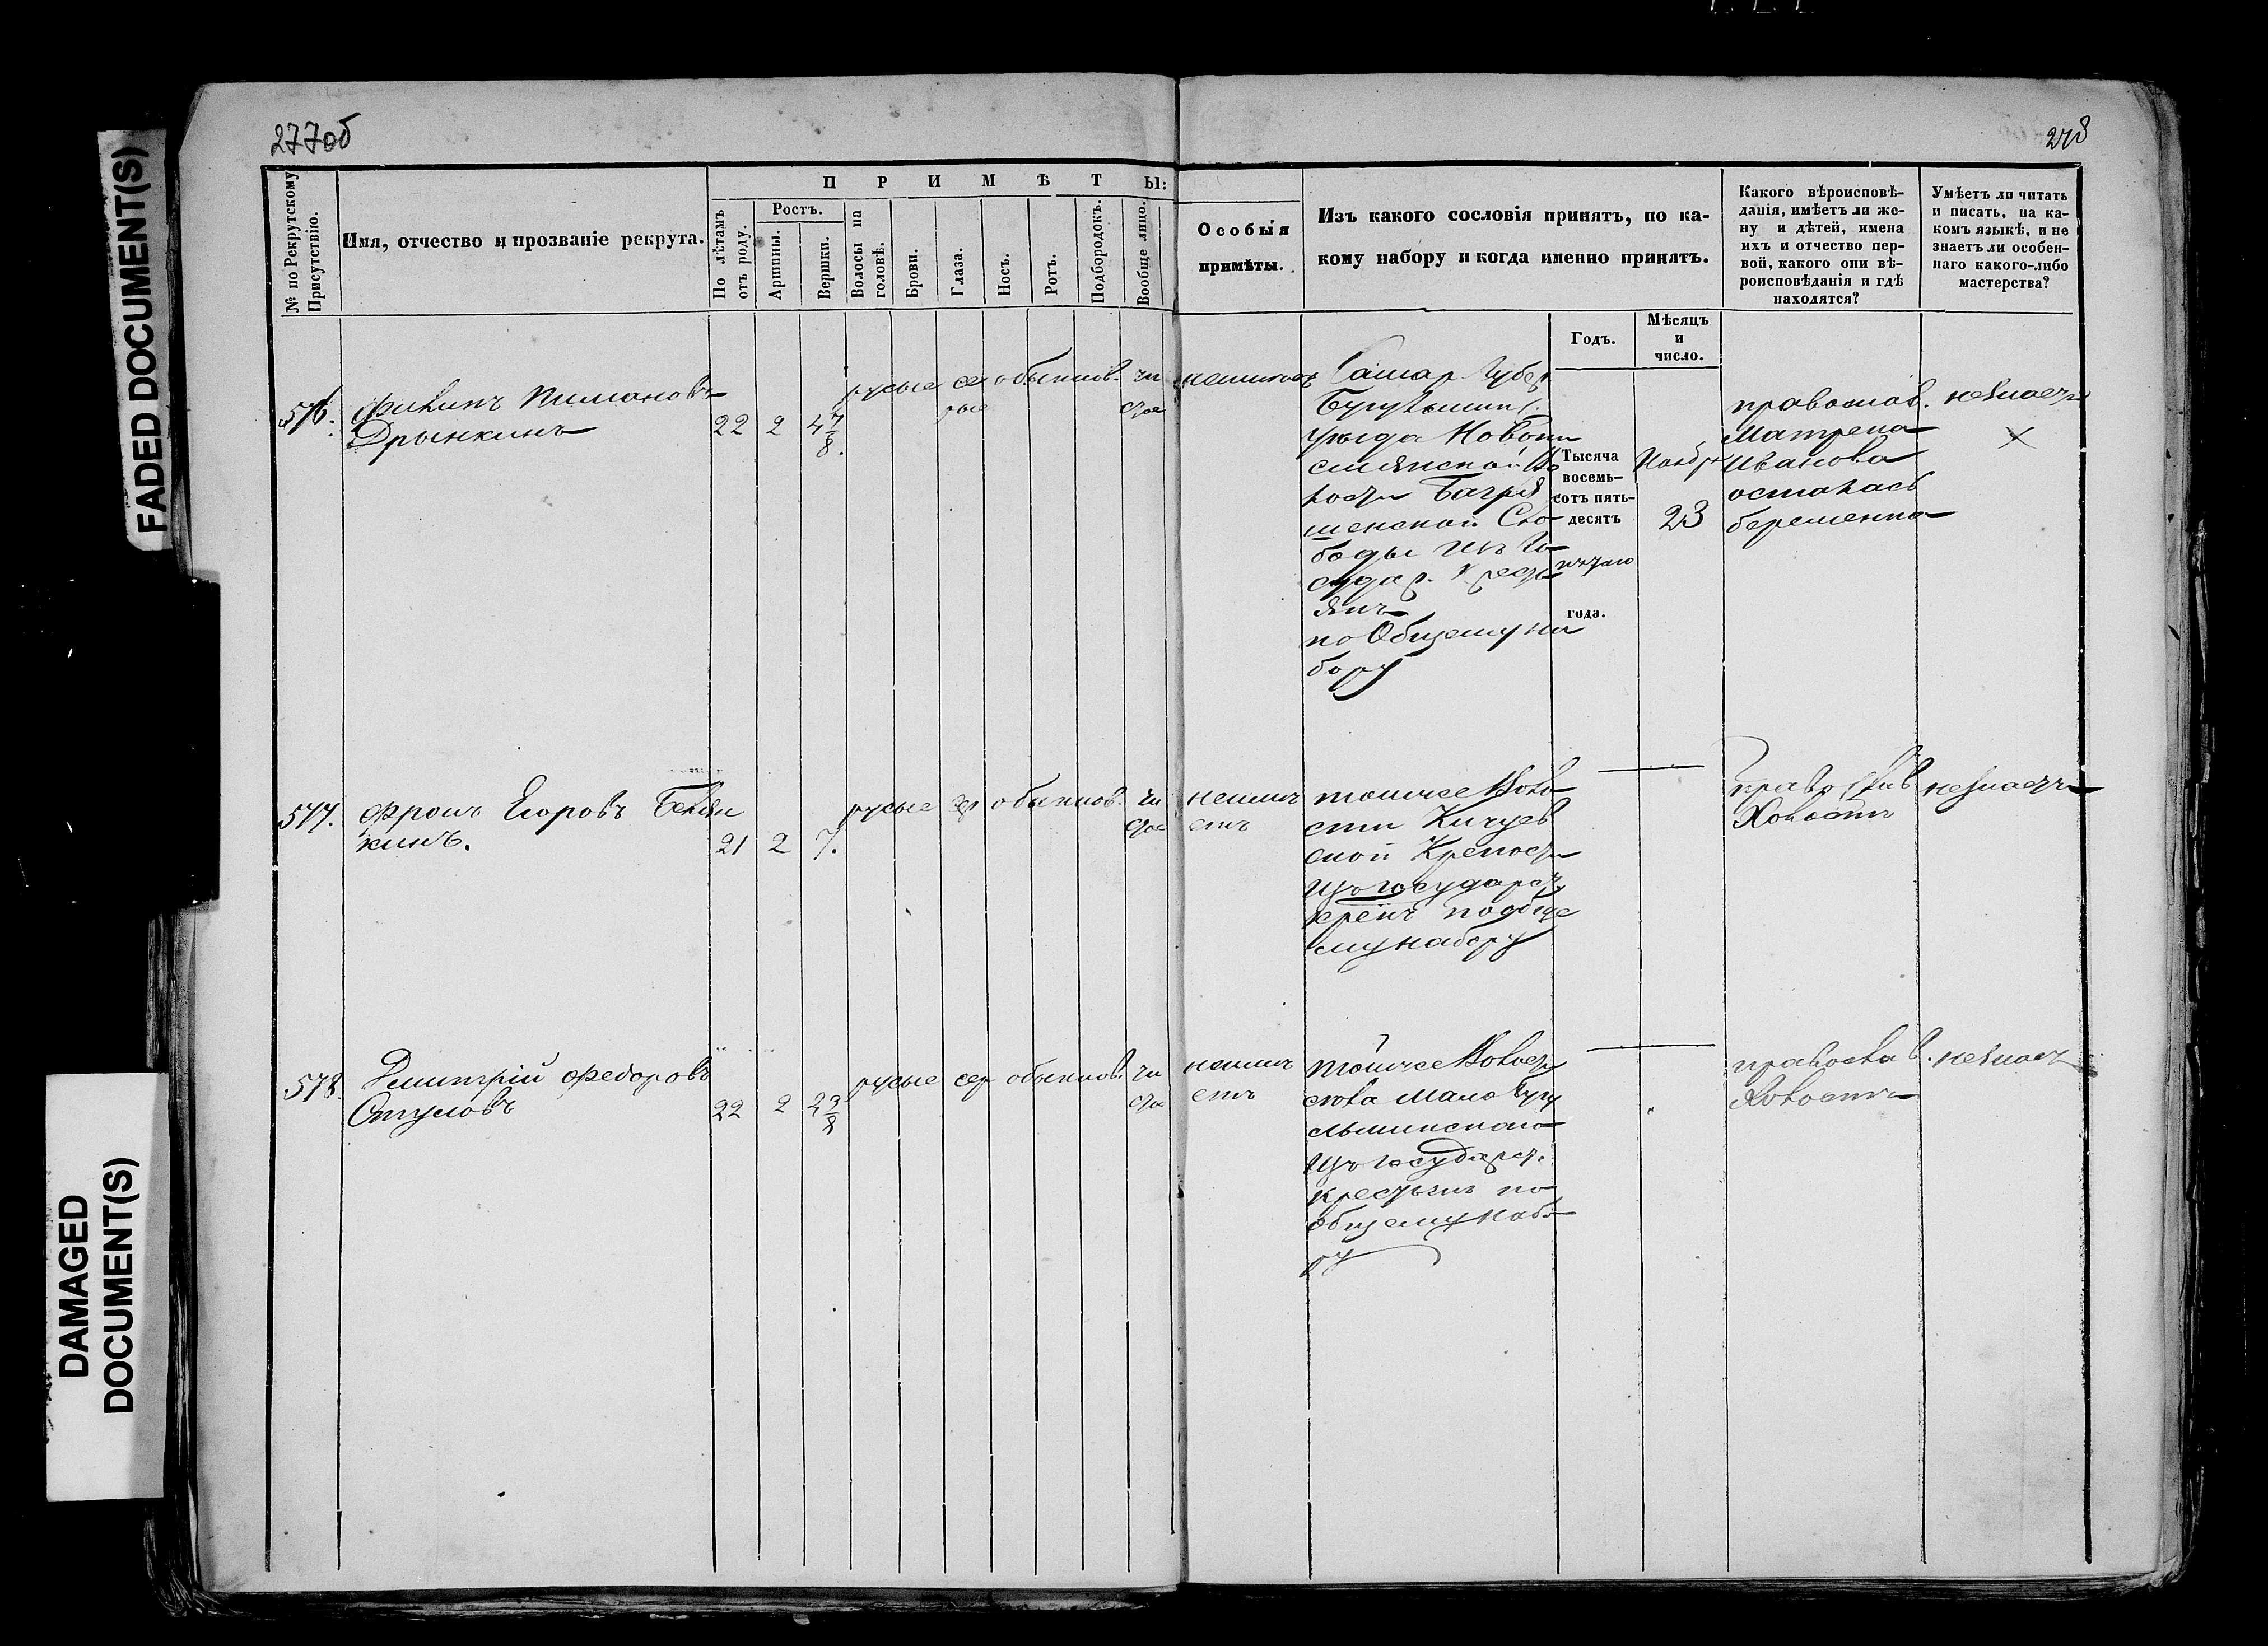 277об
278
№ по Рекрутскому
Присутствію.
Имя, отчество и прозваніе рекрута.
ПРИМѢТЫ:
По лѣтамъ
отъ роду.
Ростъ.
Аршины.
Вершки.
Волосы на
головѣ.
Брови.
Глаза.
Носъ.
Ротъ.
Подбородокъ.
Вообще лицо.
Особыя
примѣты.
Изъ какого сословія принятъ, по ка-
кому набору и когда именно принятъ.
Годъ.
Мѣсяцъ
и
число.
Какого вѣроисповѣ-
данія, имѣетъ ли же-
ну и дѣтей, имена
ихъ и отчество пер-
вой, какого они вѣ-
роисповѣданія и гдѣ
находятся?
Умѣетъ ли читать
и писать, на ка-
комъ языкѣ, и не
знаетъ ли особен-
наго какого-либо
мастерства?
576.
Филипъ Пимановъ
Дрынкинъ
22 2 4 7/8.
русые се обыкнов. чи
рые стое
неимѣетъ
Самар. Губер
Бугульмин.
уѣзда Новопи
смянской Во
лости Багря
шенской Сло
боды изъ Го
судар. Кресть
янъ
по Общему на
бору
Тысяча
восемь-
сотъ пять-
десятъ
пятаго
года.
Ноябр
23
православ.
Матрена
Иванова
осталась
беременна
незнаетъ
577.
Фролъ Егоровъ Беля
кинъ.
21 2 7.
русые сер обыкнов. чи
стое
неимѣ
етъ
тойже Воло
сти Кичуев
ской Крепости
Изъ государст.
крен пообще
му набору
православ
Холостъ
незнаетъ
578.
Дмитрій Федоровъ
Стуловъ
22 2 2 3/8
русые сер обыкнов. чи
стое
неимѣ
етъ
тойже Волости
села Мало Бугу
льминскаго
Изъ Государст.
крестьянъ по
общему набо
ру
православ.
Холостъ
незнаетъ
FADED DOCUMENT(S)
DAMAGED
DOCUMENT(S)